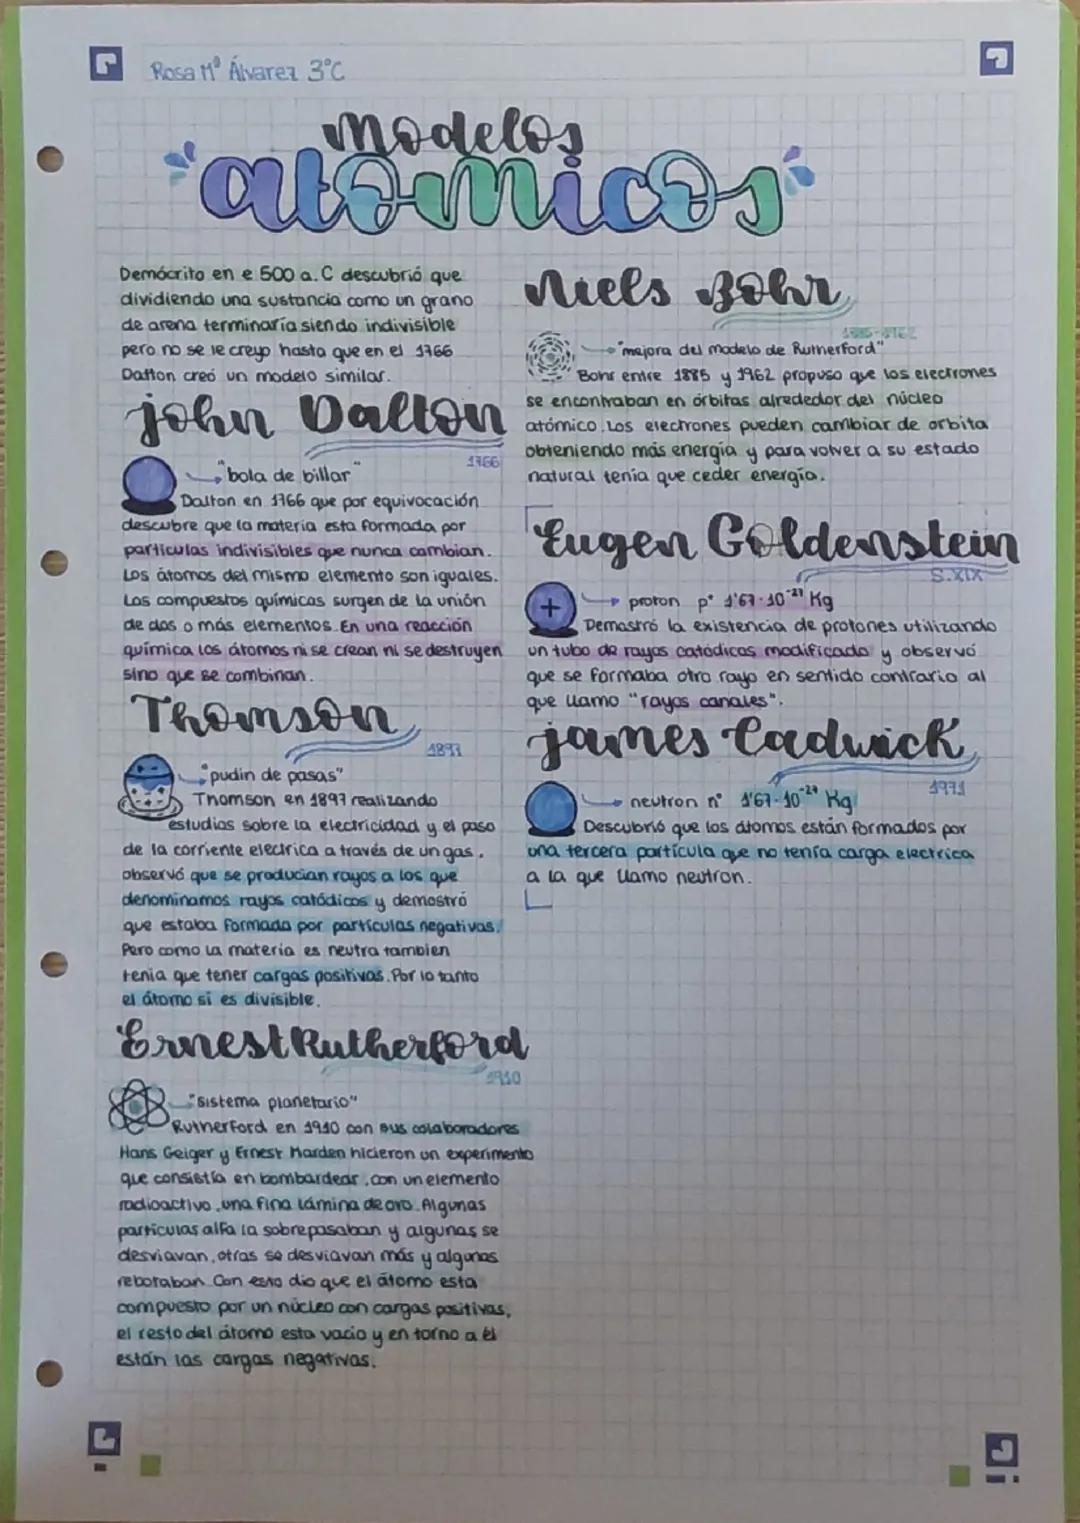 Rosa Mª Álvarez 3ºC
Modelos
"atomicos"
Demócrito en e 500 a.C descubrió que
dividiendo una sustancia como un grano
de arena terminaría siendo indivisible
pero no se le creyo hasta que en el 1766
Dalton creó un modelo similar.
john Dalton
1766
"bola de billar"
Dalton en 1766 que por equivocación
descubre que la materia esta formada por
particulas indivisibles que nunca cambian.
Los átomos del mismo elemento son iguales.
Los compuestos químicos surgen de la unión
de dos o más elementos. En una reacción
química los átomos ni se crean ni se destruyen
sino que se combinan.
Thomson
1897
"pudin de pasas"
Thomson en 1897 realizando
estudios sobre la electricidad y el paso
de la corriente electrica a través de un gas,
observó que se producian rayos a los que
denominamos rayos catódicos y demostró
que estaba formada por partículas negativas.
Pero como la materia es neutra tambien
tenia que tener cargas positivas. Por lo tanto
el átomo si es divisible.
Ernest Rutherford
1910
"sistema planetario"
Rutherford en 1910 con sus colaboradores
Hans Geiger y Ernest Marden hicieron un experimento
que consistía en bombardear, con un elemento
radioactivo, una fina lámina de oro. Algunas
particulas alfa la sobrepasaban y algunas se
desviavan, otras se desviavan más y algunas
rebotaban. Con esto dio que el átomo esta
compuesto por un núcleo con cargas positivas,
el resto del átomo esta vacio y en torno a él
están las cargas negativas.
Niels Bohr
1885-1962
"mejora del modelo de Rutherford"
Bohr entre 1885 y 1962 propuso que los electrones
se encontraban en órbitas alrededor del núcleo
atómico. Los electrones pueden cambiar de orbita
obteniendo más energía y para volver a su estado
natural tenía que ceder energía.
Eugen Goldenstein
S.XIX
+ proton p⁺ 1'67·10⁻²⁷ Kg
Demostró la existencia de protones utilizando
un tubo de rayos catódicos modificado y observó
que se formaba otro rayo en sentido contrario al
que llamo "rayos canales".
james Cadwick
1971
neutron nº 1'67·10⁻²⁷ Kg
Descubrió que los átomos están formados por
una tercera partícula que no tenía carga electrica
a la que llamo neutron.